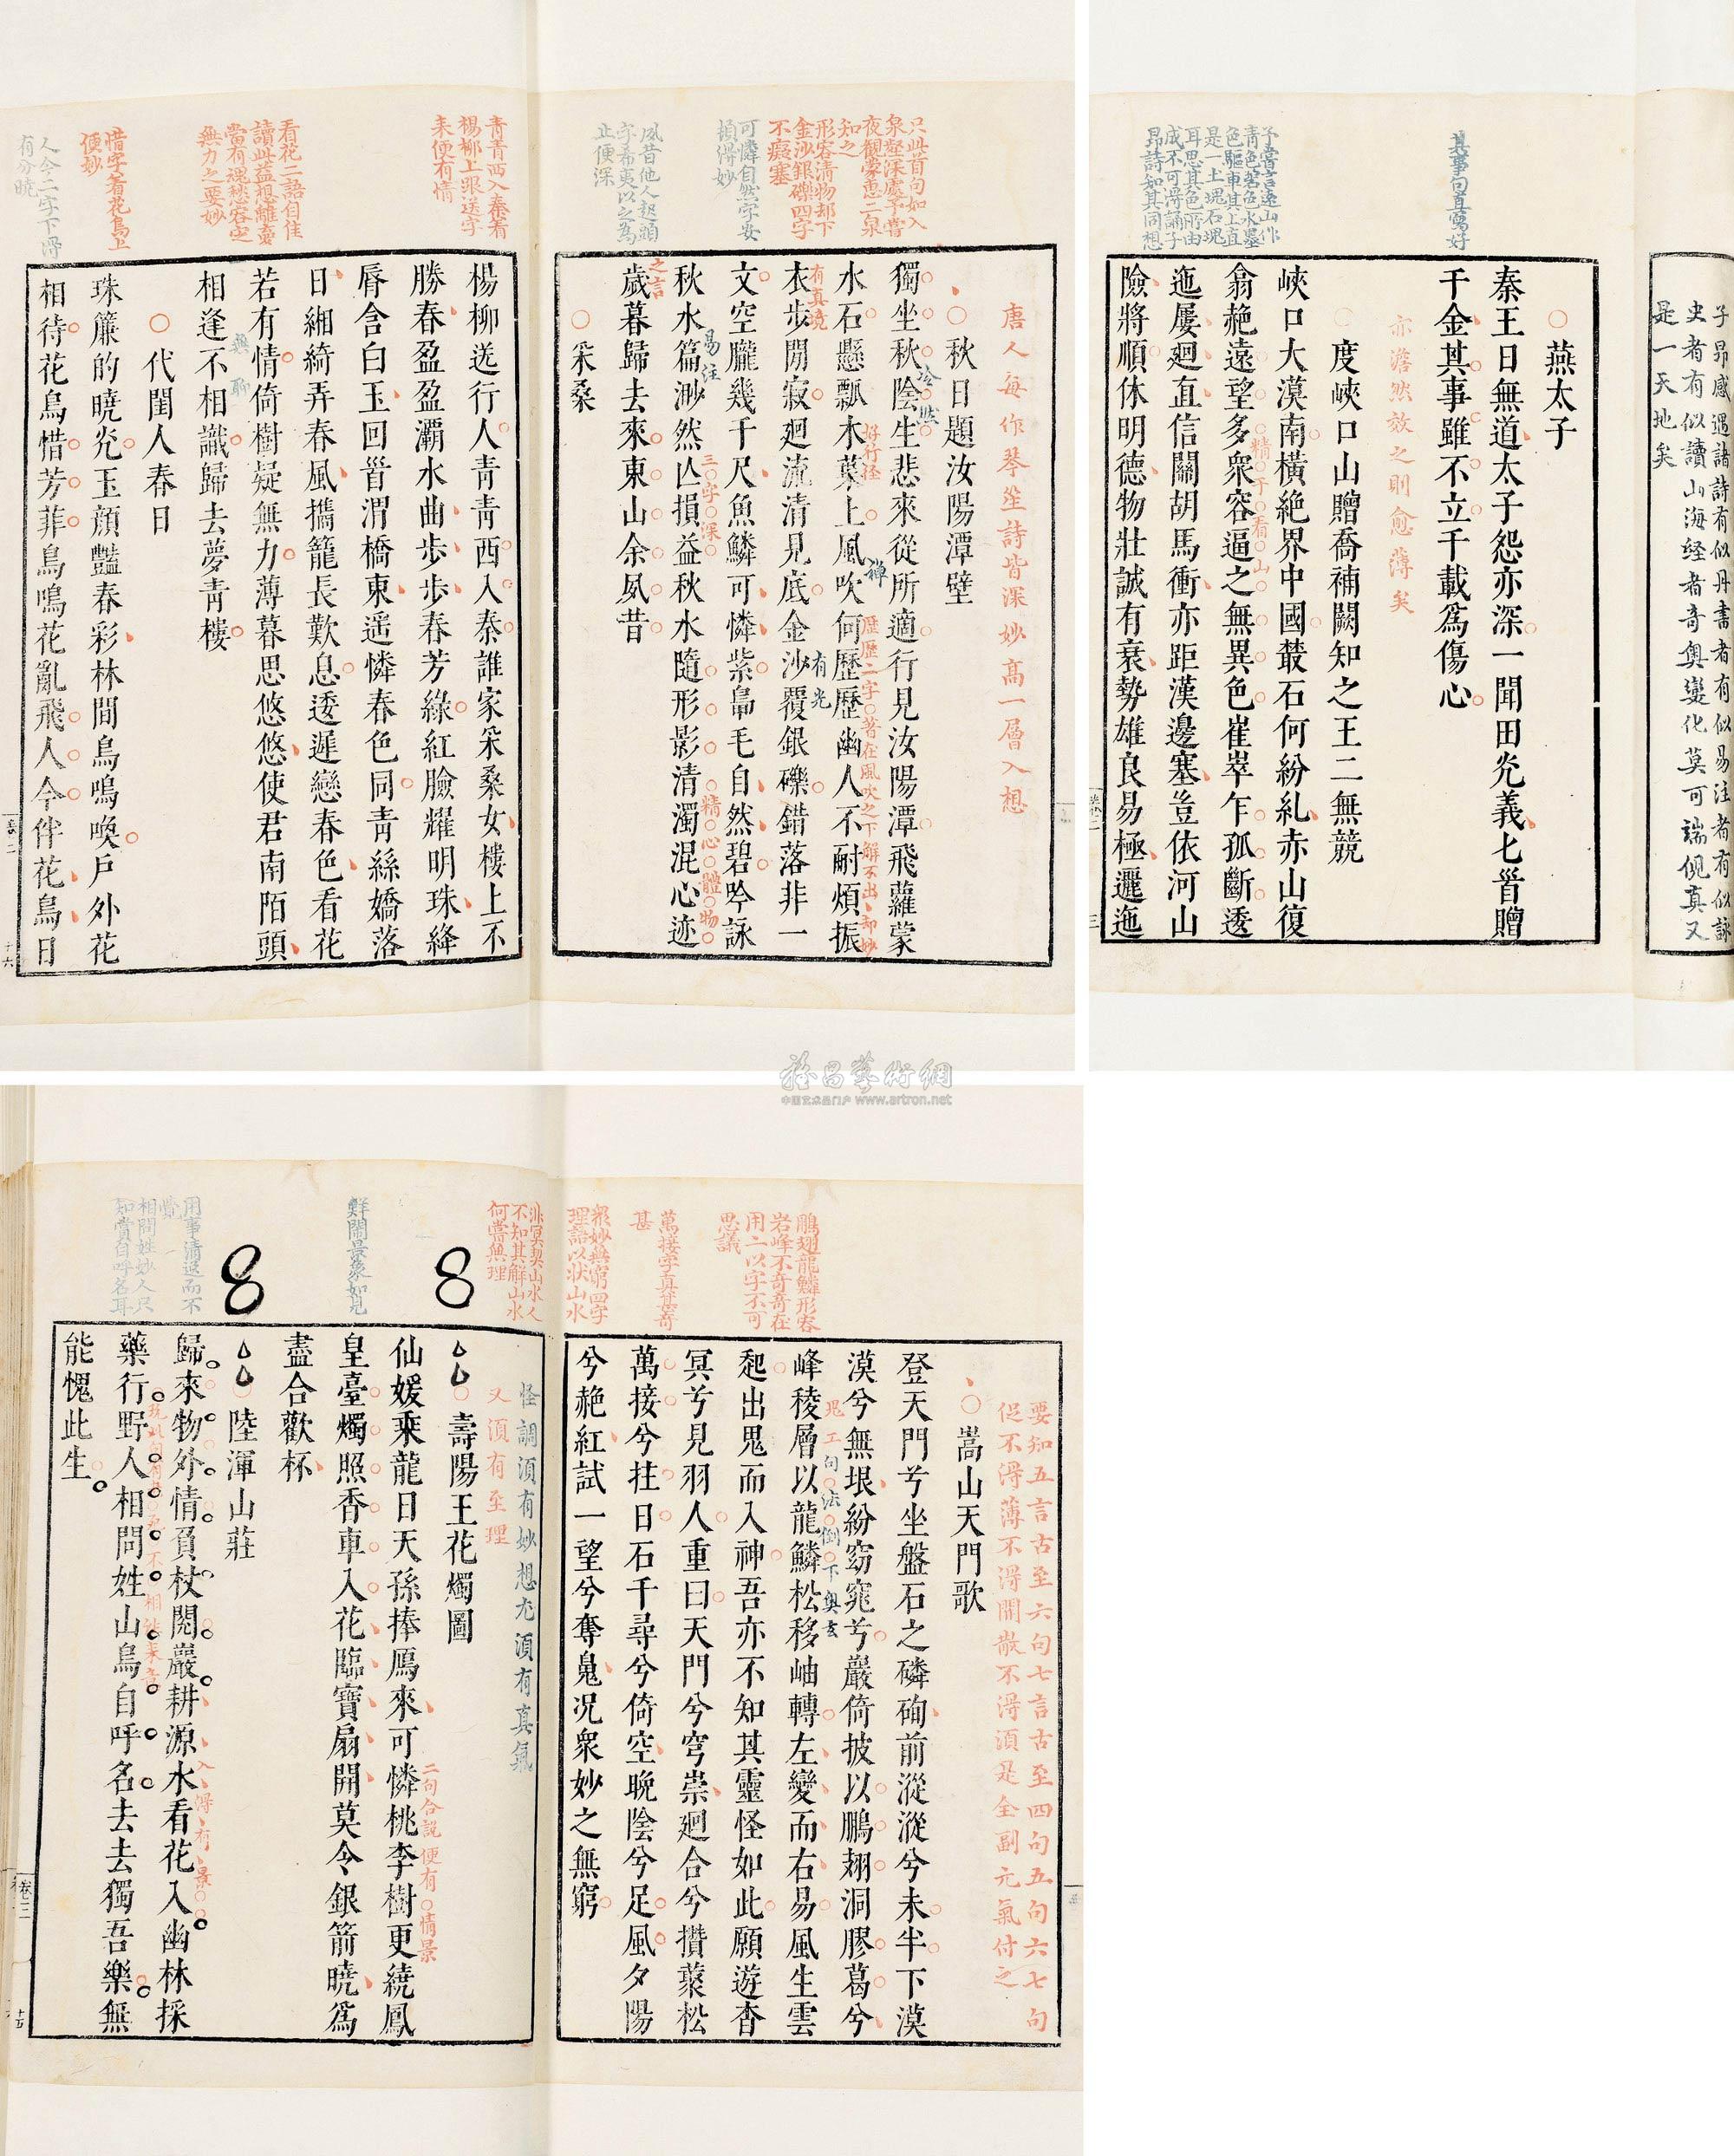 子昂感遇諸詩有似丹書者有似易注者有似詠
史者有似讀山海經者奇奧變化莫可端倪真又
是一天地矣
燕太子
秦王日無道太子怨亦深一聞田光義匕首贈
千金其事雖不立千載為傷心
真事句直寫好
亦澹然效之則愈薄矣
度峽口山贈喬補闕知之王二無競
峽口大漠南橫絕界中國叢石何紛糺赤山復
翕赩遠望多衆容逼之無異色崔崒乍孤斷逶
迤屢廻直信關胡馬衝亦距漢邊塞豈依河山
險將順休明德物壯誠有衰勢雄良易極邐迤
精于看山
予嘗言遠山作
青色若色水墨
色驅車其上直
是一土塊石塊
耳思其色所由
成不可得誦子
昂詩知其同想
唐人每作琴壁詩皆深妙高一層入想
秋日題汝陽潭壁
獨坐秋陰生悲來從所適行見汝陽潭飛蘿蒙
水石懸瓢木葉上風吹何歷歷幽人不耐煩振
衣步閒寂廻流清見底金沙覆銀礫錯落非一
文空朧幾千尺魚鱗可憐紫鳧毛自然碧吟詠
秋水篇渺然亾損益秋水隨形影清濁混心迹
歲暮歸去來東山余夙昔
采桑
冷然
好行徑
禪
歷歷二字著在風吹之下解不出却妙
有真境
有光
三字深
易注
精心體物
之言
只此首句如入
泉壑深處予嘗
夜觀蒙惠二泉
知之
形容清物却下
金沙銀礫四字
不癡塞
可憐自然字安
頓得妙
夙昔他人起頭
字希夷以之為
止便深
楊柳送行人青青西入秦誰家采桑女樓上不
勝春盈盈灞水曲步步春芳綠紅臉耀明珠絳
脣含白玉回首渭橋東遥憐春色同青絲嬌落
日緗綺弄春風攜籠長歎息逶遲戀春色看花
若有情倚樹疑無力薄暮思悠悠使君南陌頭
相逢不相識歸去夢青樓
代閨人春日
珠簾的曉光玉顏豔春彩林間鳥鳴喚戶外花
相待花鳥惜芳菲鳥鳴花亂飛人今伴花鳥日
無聊
青青西入秦着
楊柳上張送字
来便有情
看花二語自佳
讀此益想離臺
當有魂愁容定
無力之要妙
惜字着花鳥上
便妙
人今二字下得
有分曉
要知五言古至六句七言古至四句五句六七句
促不得薄不得閒散不得須是全副元氣付之
嵩山天門歌
登天門兮坐盤石之磷砠前漎漎兮未半下漠
漠兮無垠紛窈窕兮巖倚披以鵬翅洞膠葛兮
峰稜層以龍鱗松移岫轉左變而右易風生雲
起出鬼而入神吾亦不知其靈怪如此願遊杳
冥兮見羽人重曰天門兮穹崇廻合兮攢藂松
萬接兮拄日石千尋兮倚空晚陰兮足風夕陽
兮赩紅試一望兮奪䰟況衆妙之無窮
鬼工句法倒下奥玄
鵬翅龍鱗形容
岩峰不奇奇在
用二以字不可
思議
萬接字真甚奇
甚
衆妙無窮四字
理語以狀山水
非冥契山水人
不知其解山水
何嘗無理
怪調須有妙想尤須有真氣
又須有至理
壽陽王花燭圖
仙媛乘龍日天孫捧鴈來可憐桃李樹更繞鳳
皇臺燭照香車入花臨寶扇開莫令銀箭曉為
盡合歡杯
二句合說便有情景
鮮鬧景象如見
8
8
陸渾山莊
歸來物外情負杖閱巖耕源水看花入幽林採
藥行野人相問姓山鳥自呼名去去獨吾樂無
能愧此生
入得有景
用事清遠而不
覺
相問姓妙人只
知賞自呼名耳
卷二
十六
中国艺术品门户 www.artron.net